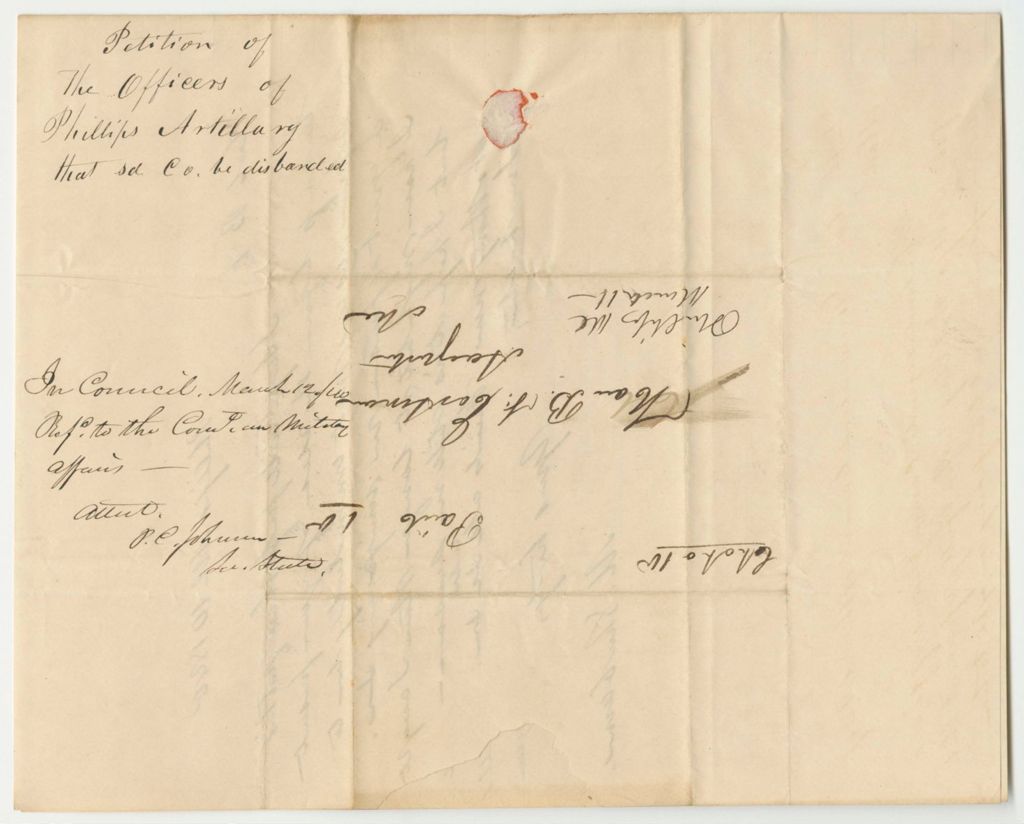 Petition of
The Officers of
Phillips Artillary
that sd Co. be disbanded
In Council, March 12/40
Refd. to the Com. on Military
affairs —
Attest.
P. C. Johnson —
Sec. State.
Phillips Me
March 11
Hon B. F. Eastman
Augusta
Me
Paid